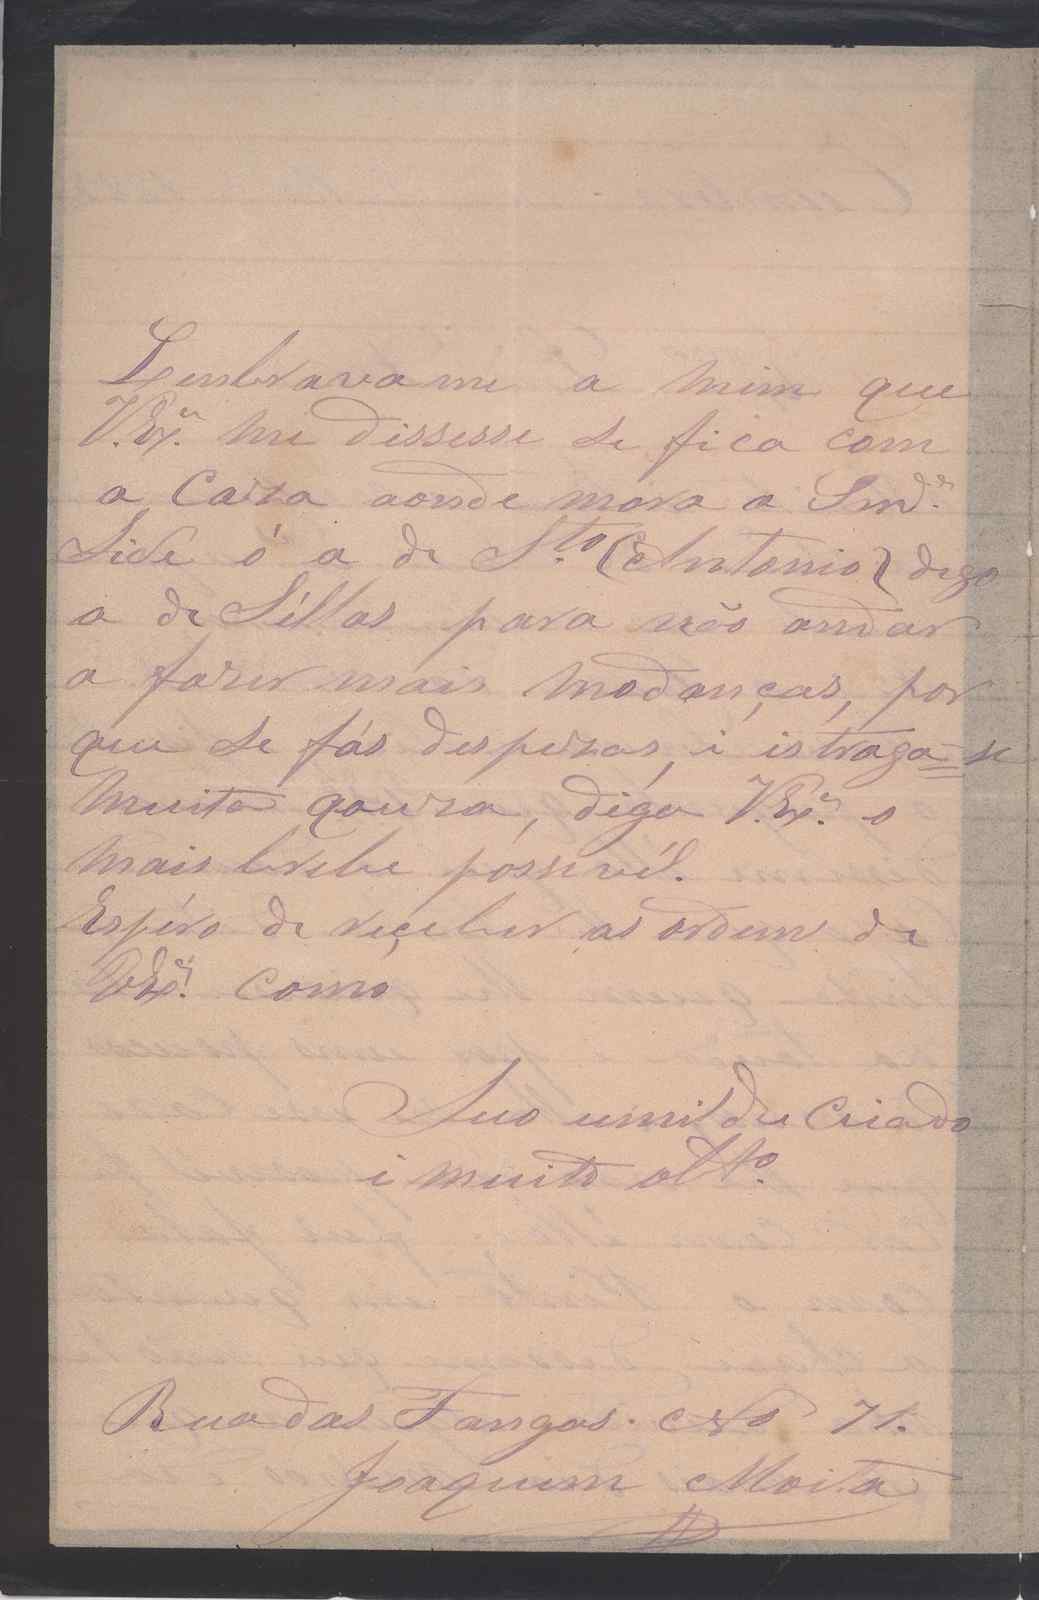 Lembrava me a mim que
V. Exª. me dissesse se fica com
a Caza aonde mora a Snrª. D.
ó a de Sto. (Antonio) digo
a de Séllas para não andar
a fazer mais modanças, por
que se fás despezas, i istraga=se
muita qouza, diga V. Exª. o
mais brebe póssivél.
Espéro de reçeber as ordens de
V Exª. como
Seu umilde Criado
i muito Attº.
Rua das Fangas. Nº 71.
Joaquim Moita